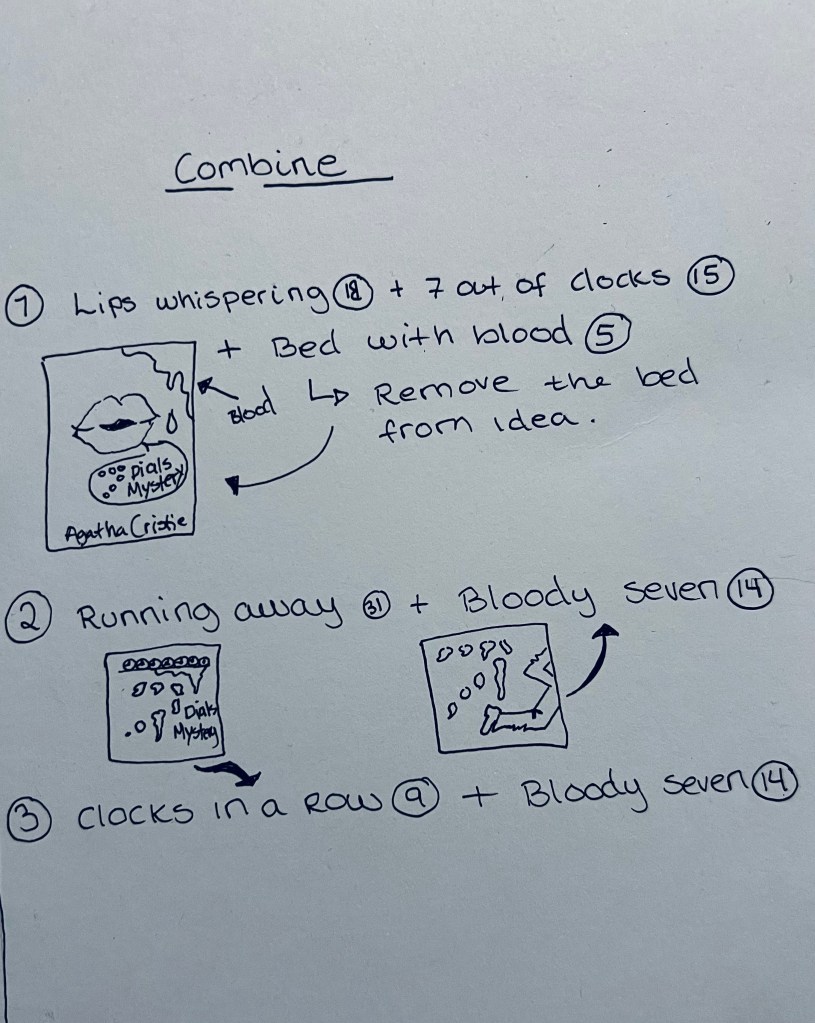 Combine
① Lips whispering ⑱ + 7 out of clocks ⑮
+ Bed with blood ⑤
Blood ↳ Remove the bed
from idea.
Dials
Mystery
Agatha Cristie
② Running away ㉛ + Bloody seven ⑭
Dials
Mystery
③ Clocks in a Row ⑨ + Bloody seven ⑭